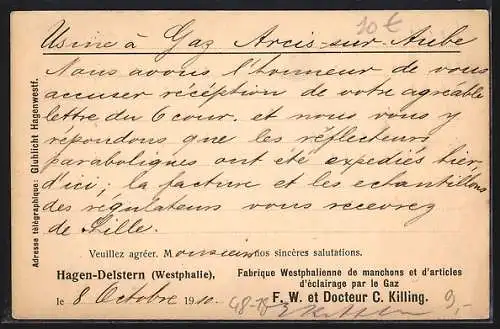 10 €
Usine à Gaz Arcis-sur-Aube
Nous avons l'honneur de vous
accuser réception de votre agréable
lettre du 6 cour. et nous vous y
répondons que les réflecteurs
paraboliques ont été expédiés hier
d'ici; la facture et les echantillons
des régulateurs vous recevrez
de Lille.
Adresse télégraphique: Gluhlicht Hagenwestf.
Veuillez agréer. Monsieur nos sincères salutations.
Hagen-Delstern (Westphalie),
le 8 Octobre 1910.
Fabrique Westphalienne de manchons et d'articles
d'éclairage par le Gaz
F. W. et Docteur C. Killing.
9,-